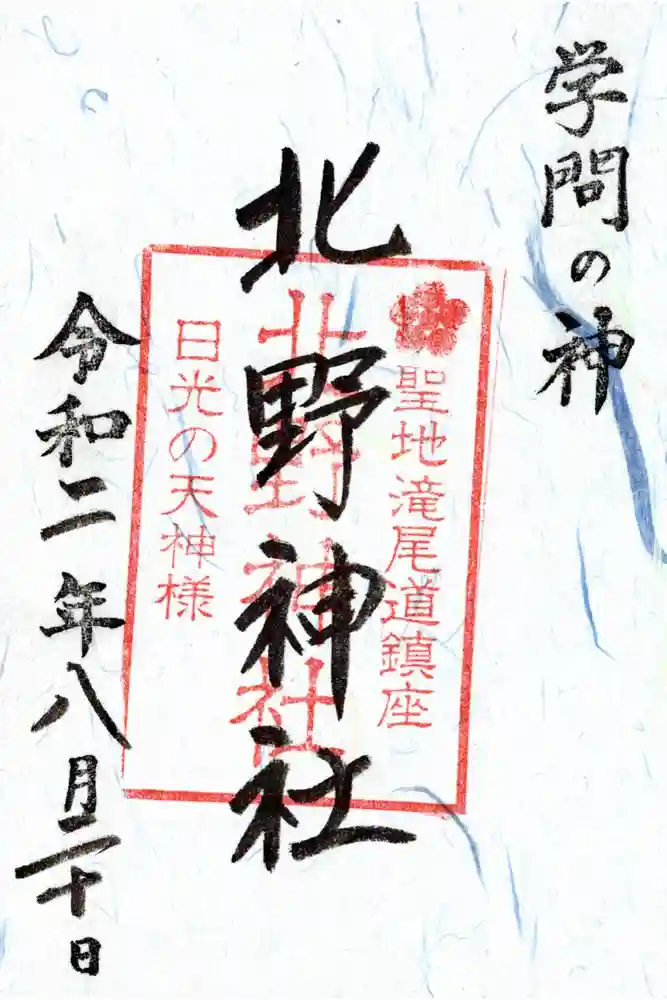 学問の神
聖地滝尾道鎮座
北野神社
北野神社
日光の天神様
令和二年八月二十日